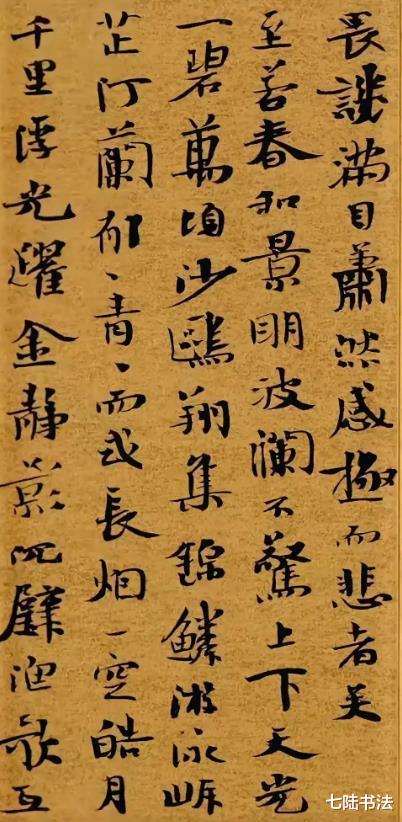 畏譏滿目蕭然感極而悲者矣
至若春和景明波瀾不驚上下天光
一碧萬頃沙鷗翔集錦鱗游泳岸
芷汀蘭郁、青、而或長烟一空皓月
千里浮光躍金靜影沉璧漁歌互
七陆书法